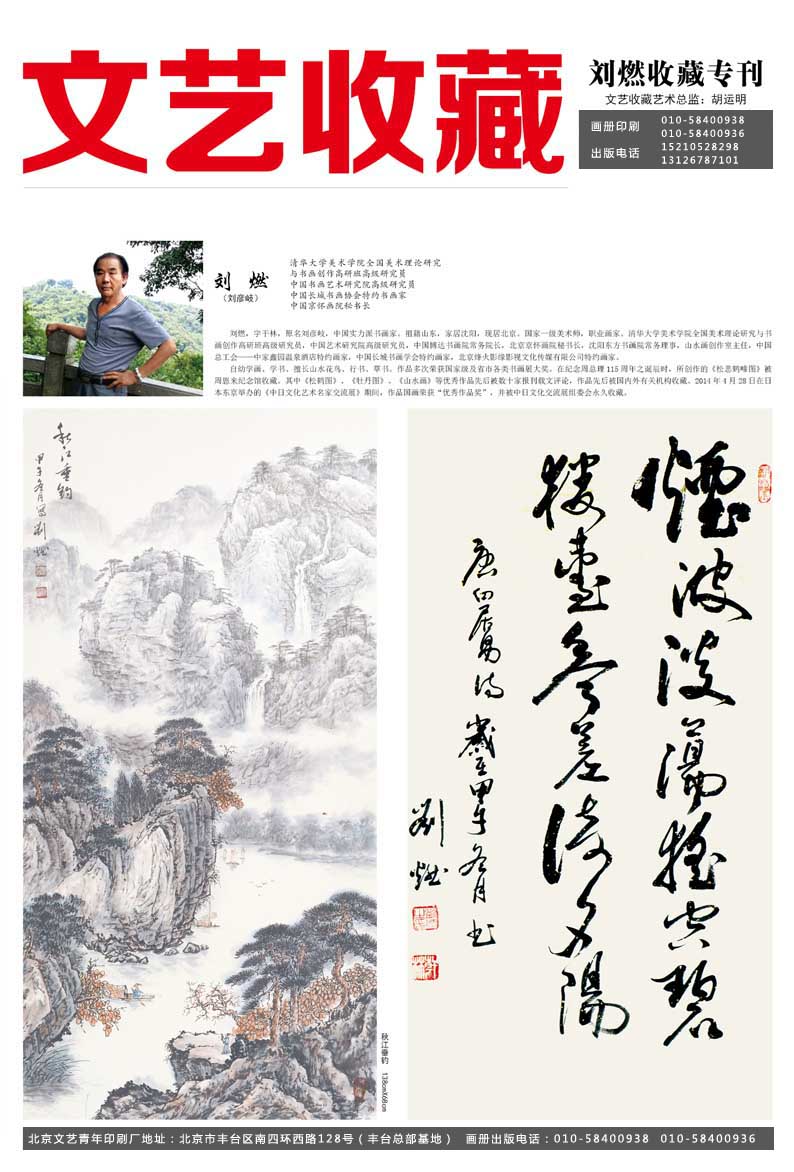 文艺收藏
刘燃收藏专刊
文艺收藏艺术总监：胡运明
画册印刷
010-58400938
010-58400936
出版电话
15210528298
13126787101
刘 燃
（刘彦岐）
清华大学美术学院全国美术理论研究
与书画创作高研班高级研究员
中国书画艺术研究院高级研究员
中国长城书画协会特约书画家
中国京怀画院秘书长
刘燃，字于林，原名刘彦岐，中国实力派书画家。祖籍山东，家居沈阳，现居北京。国家一级美术师，职业画家。清华大学美术学院全国美术理论研究与书
画创作高研班高级研究员，中国艺术研究院高级研究员，中国辉达书画院常务院长，北京京怀画院秘书长，沈阳东方书画院常务理事，山水画创作室主任，中国
总工会——中家鑫园温泉酒店特约画家，中国长城书画学会特约画家，北京烽火影缘影视文化传媒有限公司特约画家。
自幼学画、学书、擅长山水花鸟、行书、草书。作品多次荣获国家级及省市各类书画展大奖。在纪念周总理 115 周年之诞辰时，所创作的《松恋鹤峰图》被
周恩来纪念馆收藏。其中《松鹤图》、《牡丹图》、《山水画》等优秀作品先后被数十家报刊载文评论，作品先后被国内外有关机构收藏。2014 年 4 月 28 日在日
本东京举办的《中日文化艺术名家交流展》期间，作品国画荣获“优秀作品奖”，并被中日文化交流展组委会永久收藏。
秋江垂钓
甲午冬月写刘燃
秋江垂钓 138cmX68cm
煙波淡蕩摇空碧
楼臺参差倚夕陽
唐白居易诗 歲在甲午冬月书
劉燃
北京文艺青年印刷厂地址：北京市丰台区南四环西路128号（丰台总部基地） 画册出版电话：010-58400938 010-58400936